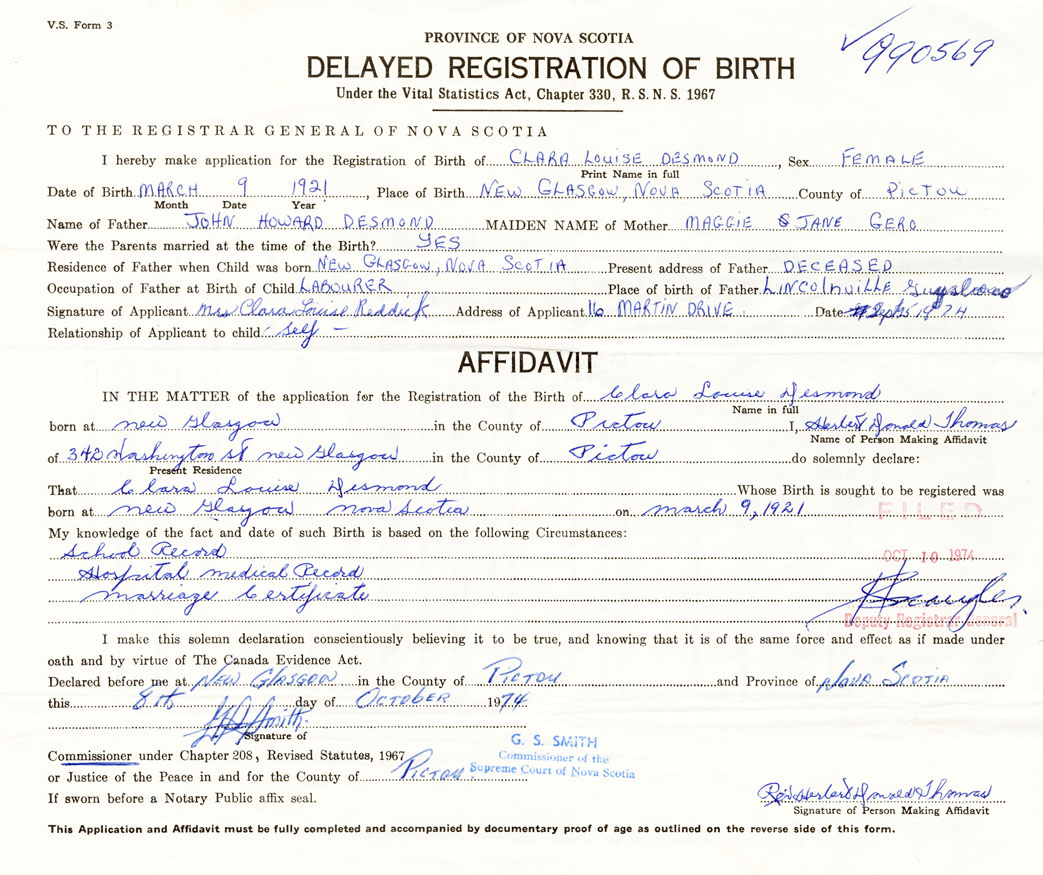 V.S. Form 3
990569
PROVINCE OF NOVA SCOTIA
DELAYED REGISTRATION OF BIRTH
Under the Vital Statistics Act, Chapter 330, R. S. N. S. 1967
TO THE REGISTRAR GENERAL OF NOVA SCOTIA
I hereby make application for the Registration of Birth of CLARA LOUISE DESMOND, Sex FEMALE
Print Name in full
Date of Birth MARCH 9 1921, Place of Birth NEW GLASGOW, NOVA SCOTIA County of PICTOU
Month Date Year
Name of Father JOHN HOWARD DESMOND MAIDEN NAME of Mother MAGGIE JANE GERO
Were the Parents married at the time of the Birth? YES
Residence of Father when Child was born NEW GLASGOW, NOVA SCOTIA Present address of Father DECEASED
Occupation of Father at Birth of Child LABOURER Place of birth of Father LINCOLNVILLE
Signature of Applicant Mrs Clara Louise Reddick Address of Applicant 16 MARTIN DRIVE Date Sept 15 1974
Relationship of Applicant to child Self -
AFFIDAVIT
IN THE MATTER of the application for the Registration of Birth of Clara Louise Desmond
Name in full
born at New Glasgow in the County of Pictou I, Herbert Donald Thomas
Name of Person Making Affidavit
of 342 Washington St New Glasgow in the County of Pictou do solemnly declare:
Present Residence
That Clara Louise Desmond Whose Birth is sought to be registered was
born at New Glasgow Nova Scotia on March 9, 1921
FILED
My knowledge of the fact and date of such Birth is based on the following Circumstances:
School Record
OCT 10 1974
Hospital medical Record
Marriage Certificate
Deputy Registrar General
I make this solemn declaration conscientiously believing it to be true, and knowing that it is of the same force and effect as if made under
oath and by virtue of The Canada Evidence Act.
Declared before me at NEW GLASGOW in the County of PICTOU and Province of NOVA SCOTIA
this 8th day of OCTOBER 1974
G S Smith
Signature of
G. S. SMITH
Commissioner under Chapter 208, Revised Statutes, 1967
Commissioner of the
or Justice of the Peace in and for the County of PICTOU
Supreme Court of Nova Scotia
If sworn before a Notary Public affix seal.
Rev Herbert Donald Thomas
Signature of Person Making Affidavit
This Application and Affidavit must be fully completed and accompanied by documentary proof of age as outlined on the reverse side of this form.